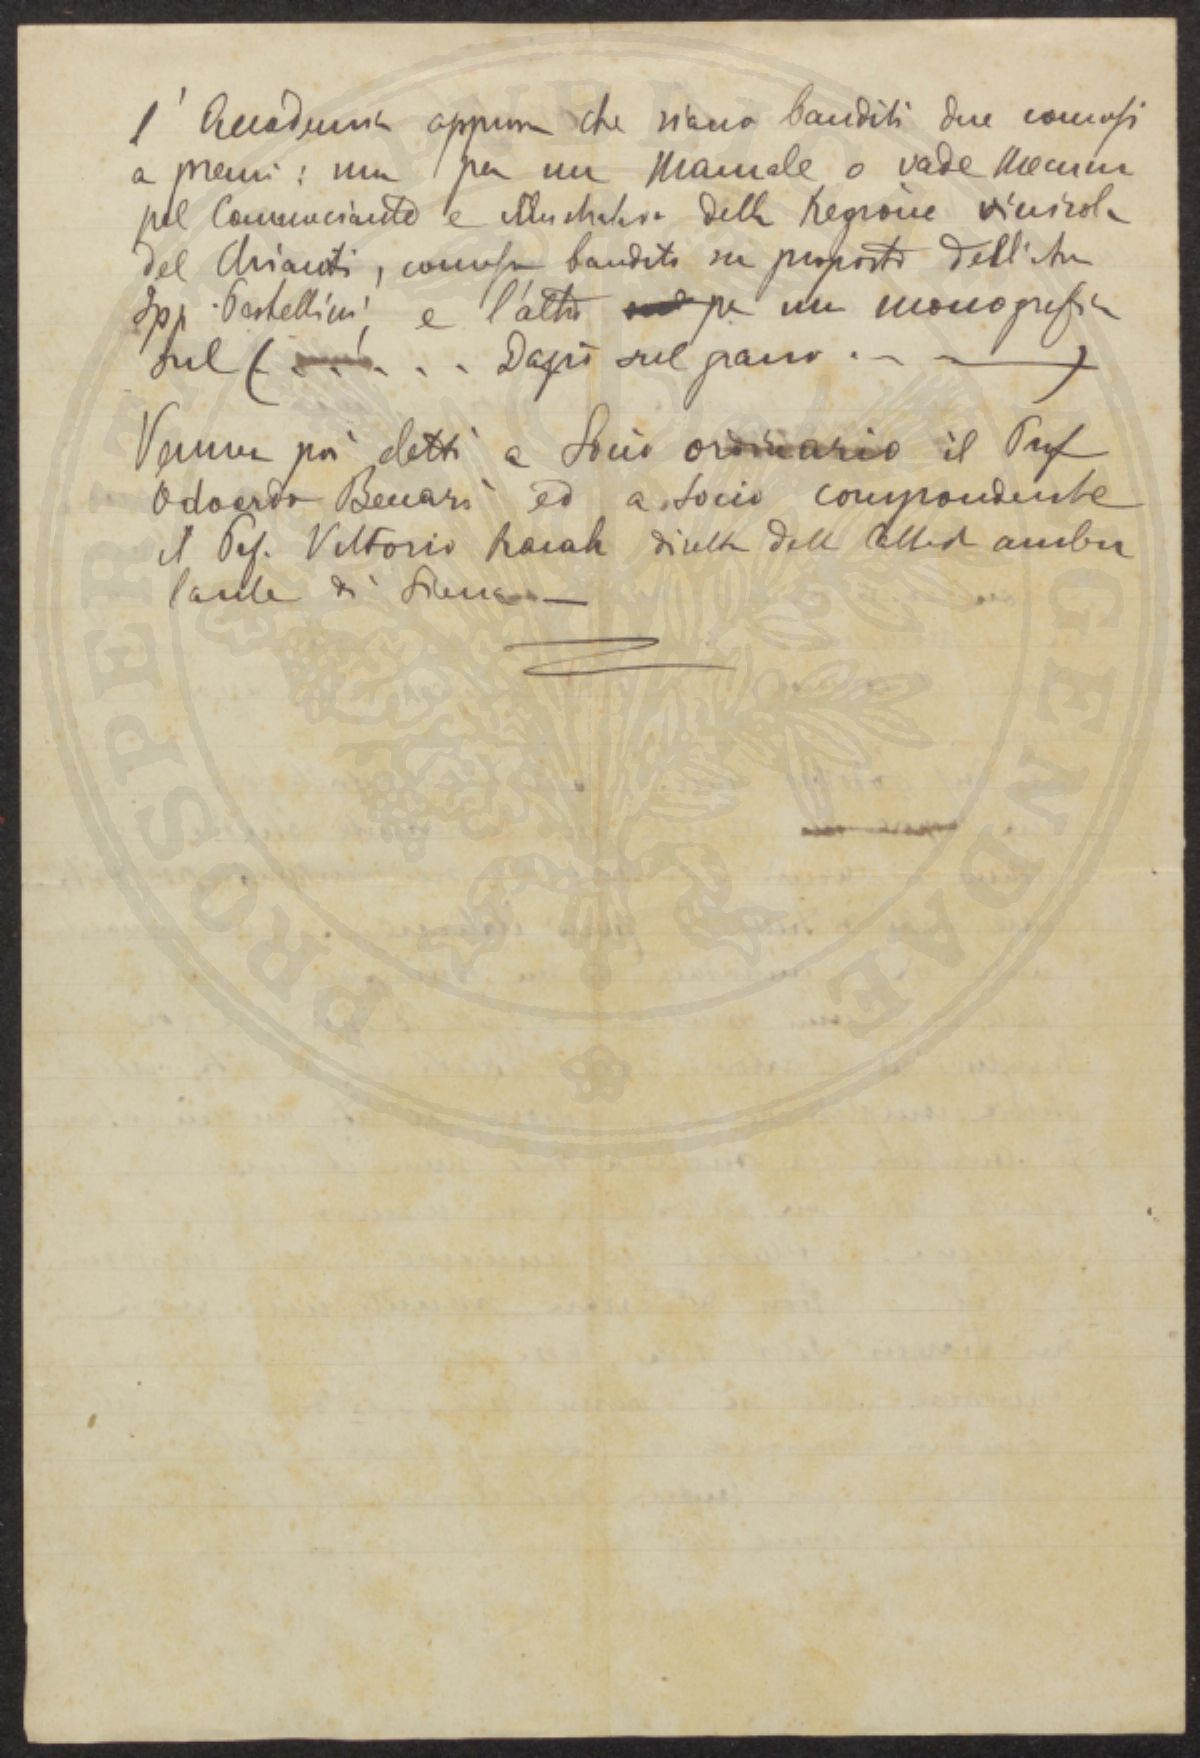 l'Accademia approva che siano banditi due concorsi
a premi: uno per un Manuale o vade Mecum
pel Commerciante e illustrativo della Regione vinicola
del Chianti, concorso bandito su proposta dell'Avv
Ipp. Pestellini, e l'altro per una monografia
sul ( . . . . . Dazio sul grano . - - — )
Venner poi eletti a Socio ordinario il Prof
Odoardo Beccari ed a socio corrispondente
il Prof. Vittorio Racah dirett della Catted ambu
lante di Siena —
PROSPERITATI PUBLICAE AUGENDAE